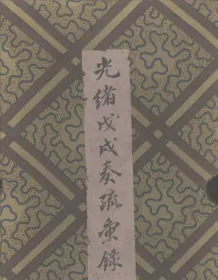 光緒戊戌奏疏彙錄